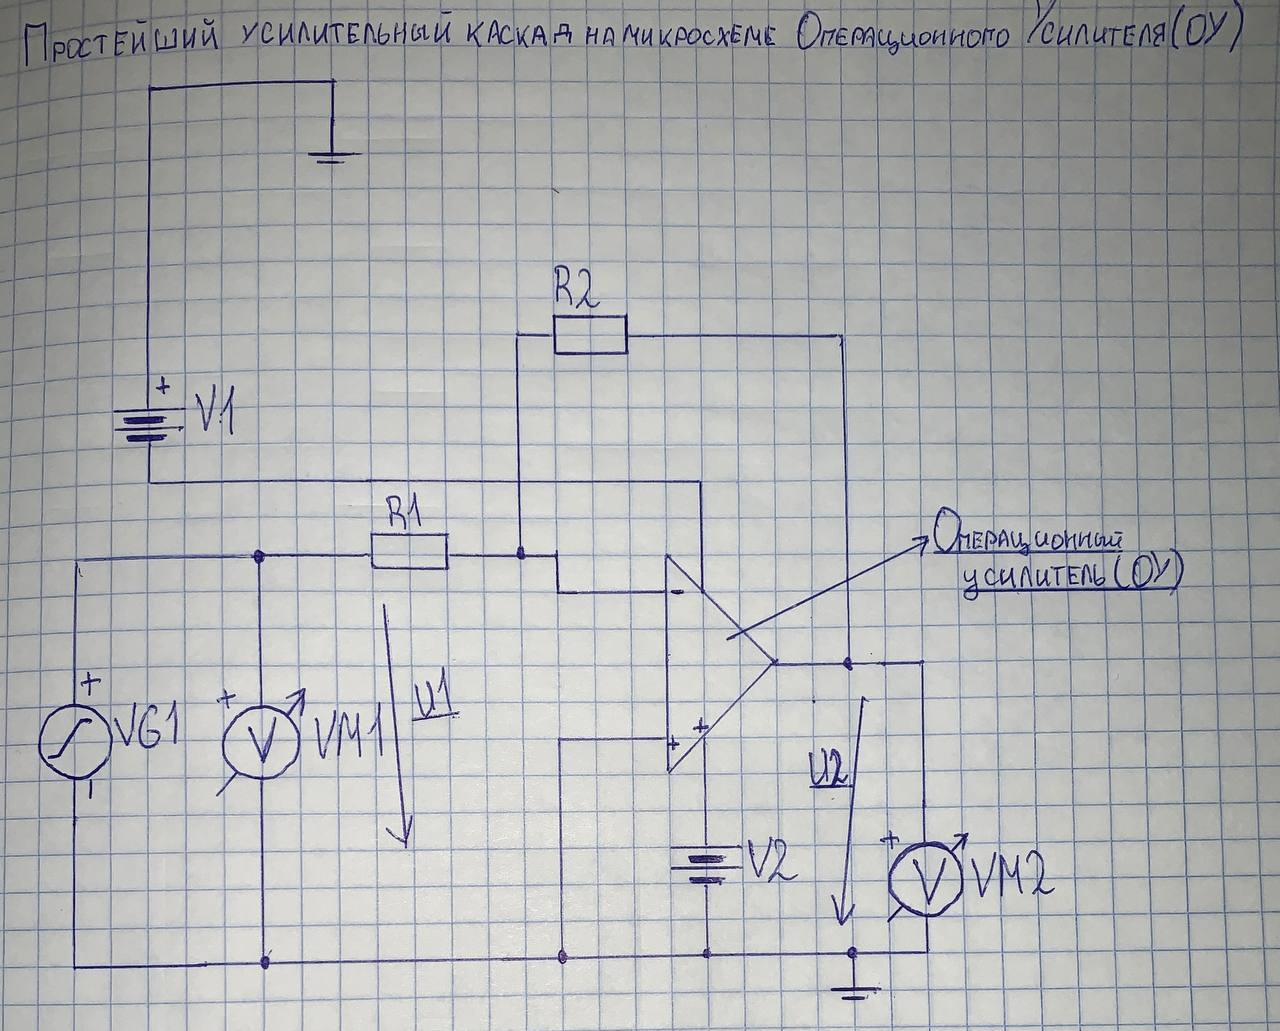 Простейший усилительный каскад на микросхеме Операционного Усилителя (ОУ)
R2
+
V1
R1
Операционный
усилитель (ОУ)
-
+
VG1
-
+
V
VM1
U1
+
+
U2
V2
+
V
VM2